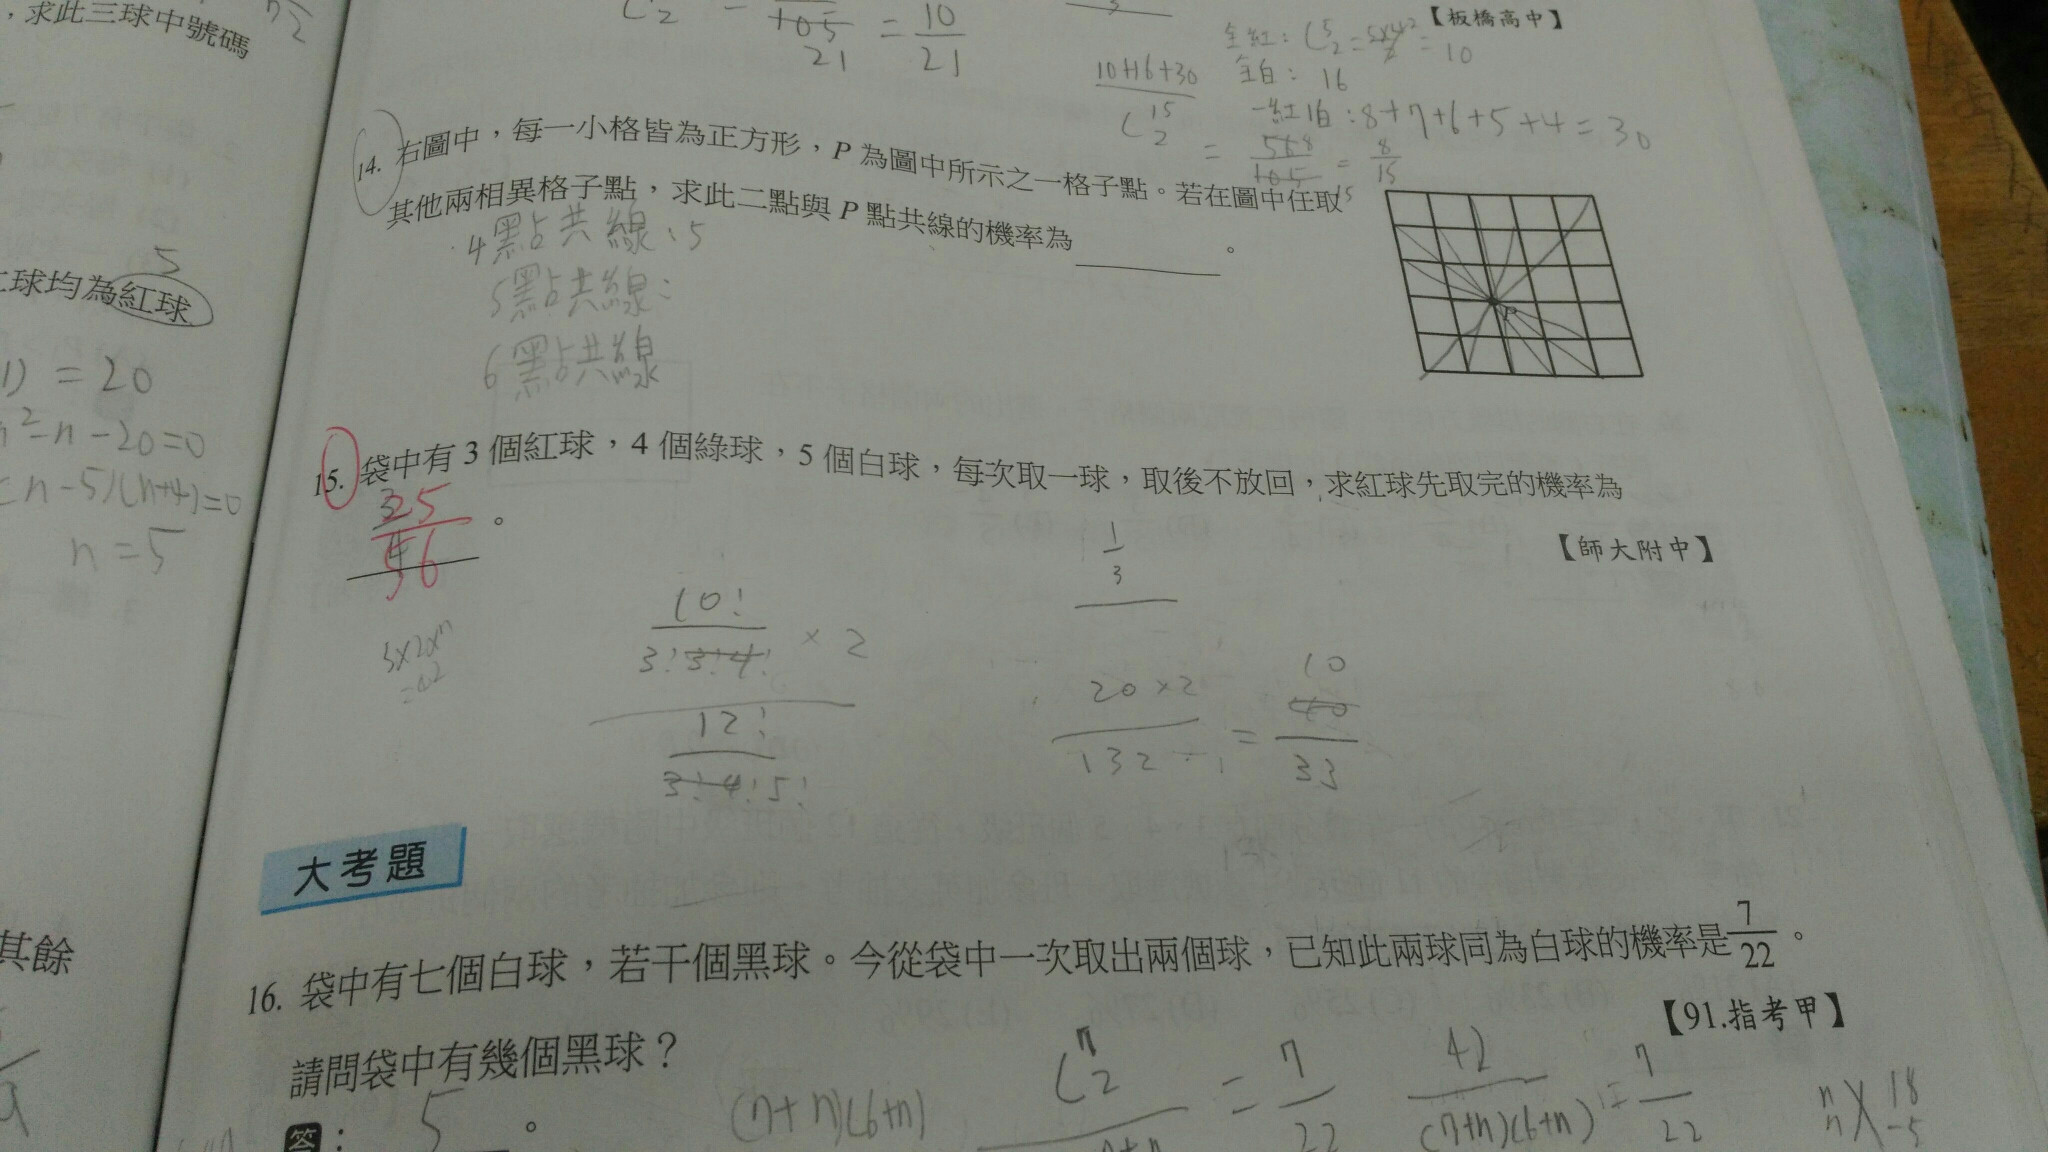 ，求此三球中號碼
球均為紅球
5
= 20
-n-20=0
n-5)(n+4)=0
n=5
其餘
= 10/21
【板橋高中】
全紅：C5 2 = 5×4/2 = 10
全白：16
一紅1白：8+7+6+5+4=30
10+16+30 / C15 2 = 8/15
14. 右圖中，每一小格皆為正方形，P 為圖中所示之一格子點。若在圖中任取
其他兩相異格子點，求此二點與 P 點共線的機率為＿＿＿。
4點共線：5
5點共線：
6點共線
P
15. 袋中有 3 個紅球，4 個綠球，5 個白球，每次取一球，取後不放回，求紅球先取完的機率為
。
【師大附中】
1/3
10! / 3!3!4! × 2
12! / 3!4!5!
20×2 / 132 = 40/33
10
大考題
16. 袋中有七個白球，若干個黑球。今從袋中一次取出兩個球，已知此兩球同為白球的機率是 7/22。
【91.指考甲】
請問袋中有幾個黑球？
答：5。
(7+n)(6+n)
C7 2 = 7/22
42 / (7+n)(6+n) = 7/22
n 18
n -5